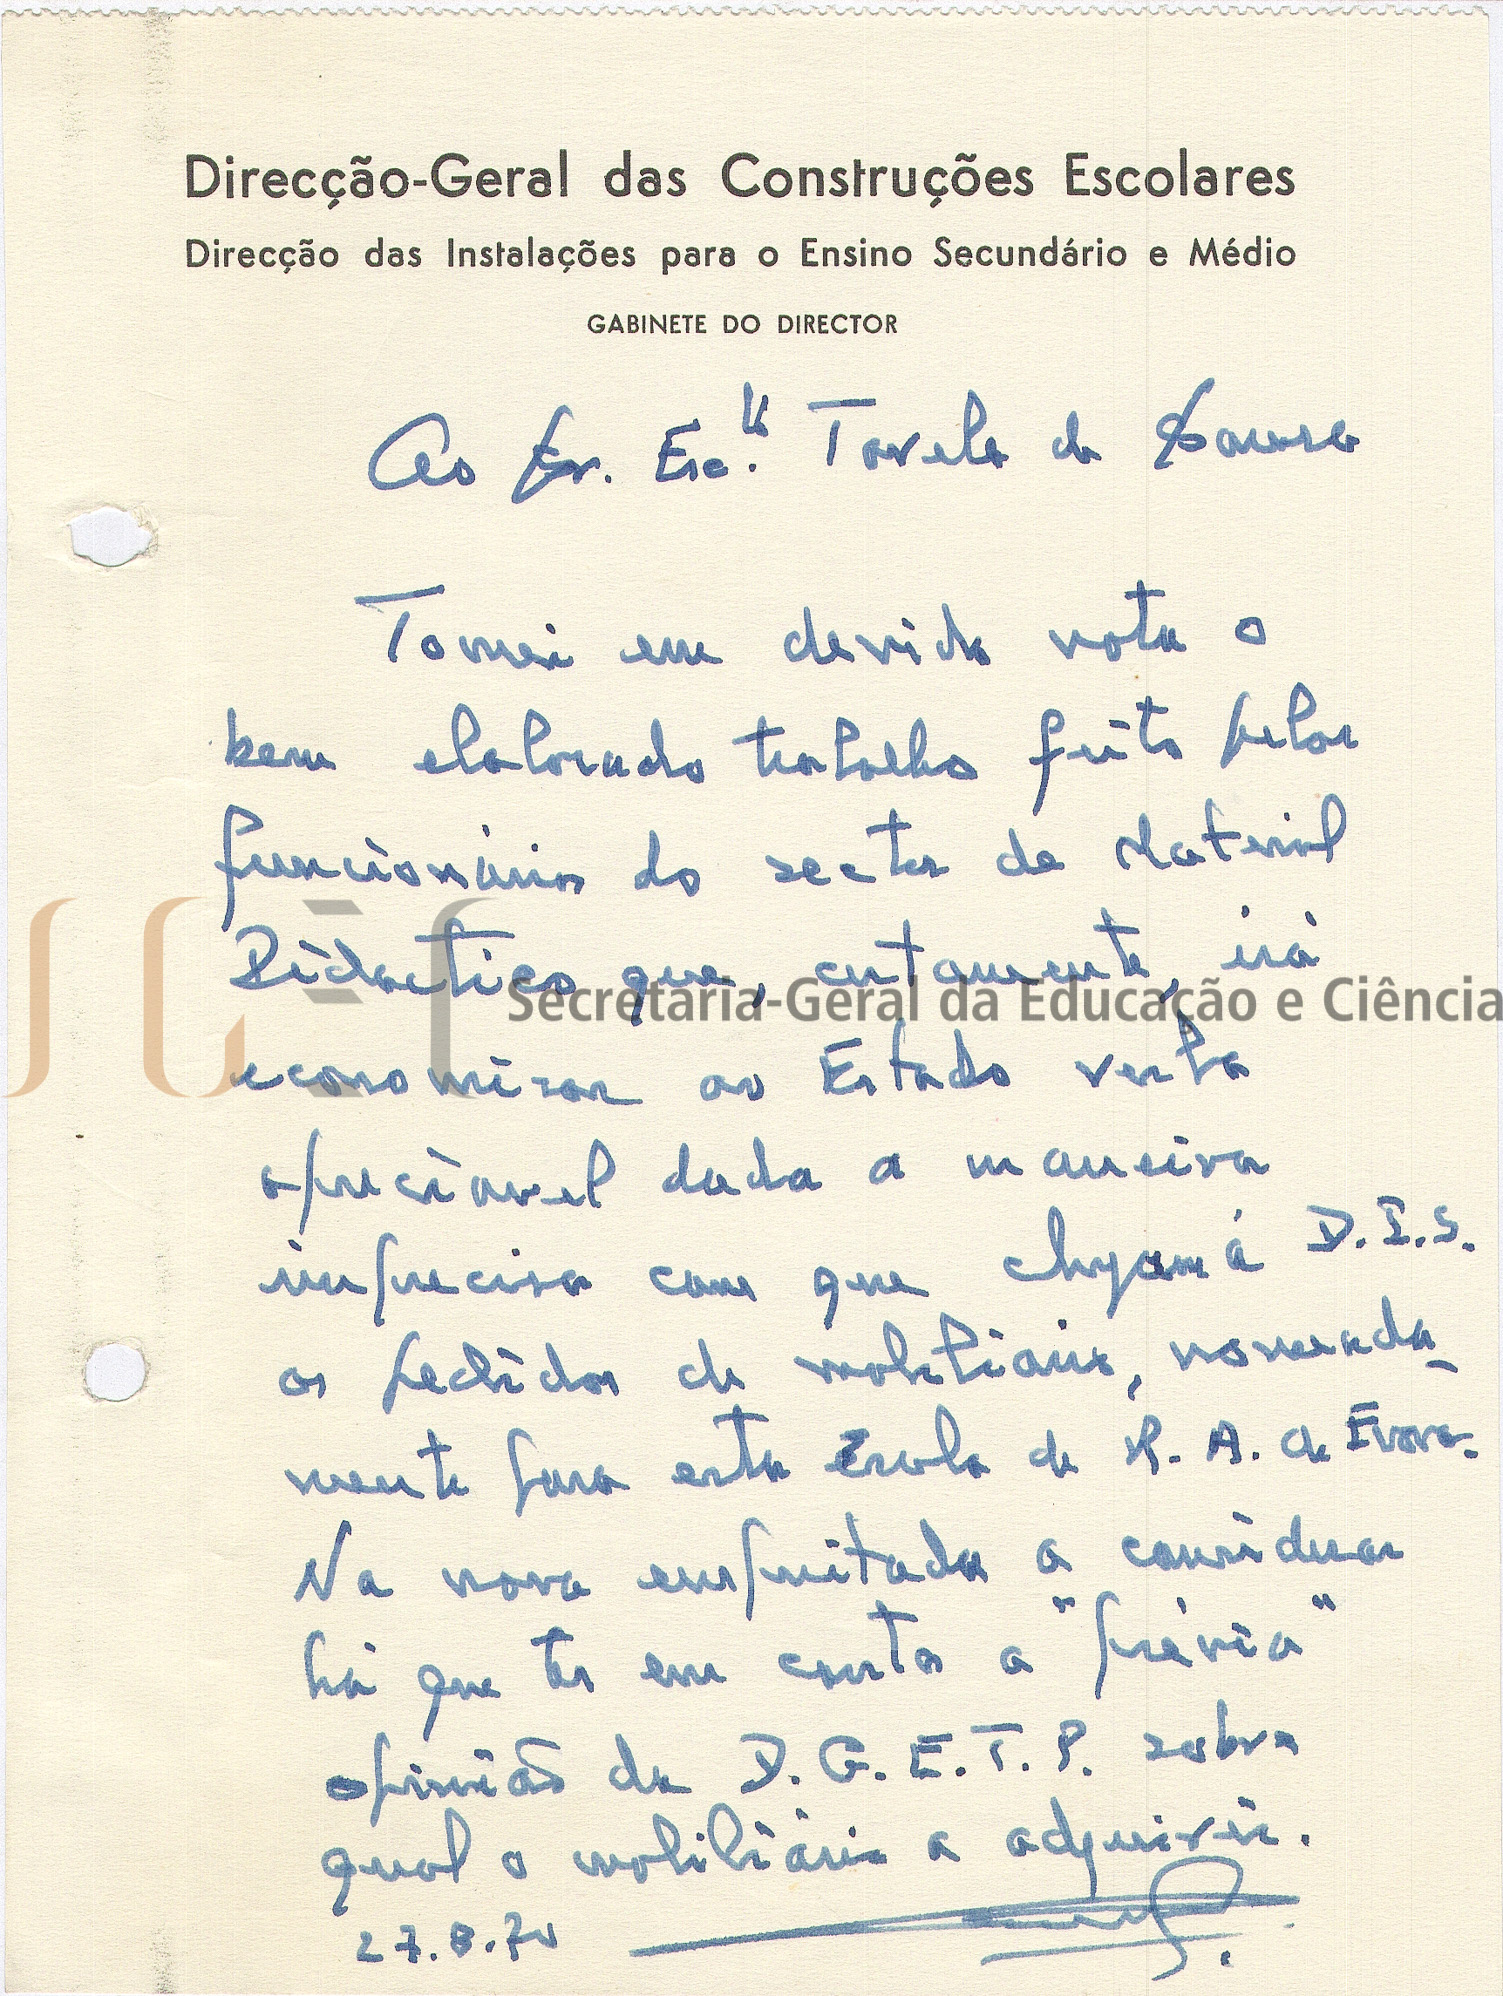 Direcção-Geral das Construções Escolares
Direcção das Instalações para o Ensino Secundário e Médio
GABINETE DO DIRECTOR
Ao Sr. Esc. Tavela de Sousa
Tomei em devida nota o
bem elaborado trabalho feito pelos
funcionários do sector de Material
Didactico que, certamente, irá
Secretaria-Geral da Educação e Ciência
economizar ao Estado verba
apreciavel dada a maneira
imprecisa com que chegam á D.I.S.
os pedidos de mobiliário, nomeada-
mente para esta Escola de R. A. de Evora.
Na nova empreitada a considerar
há que ter em conta a "prévia"
opinião da D. G. E. T. P. sobre
qual o mobiliário a adquirir.
27.8.70